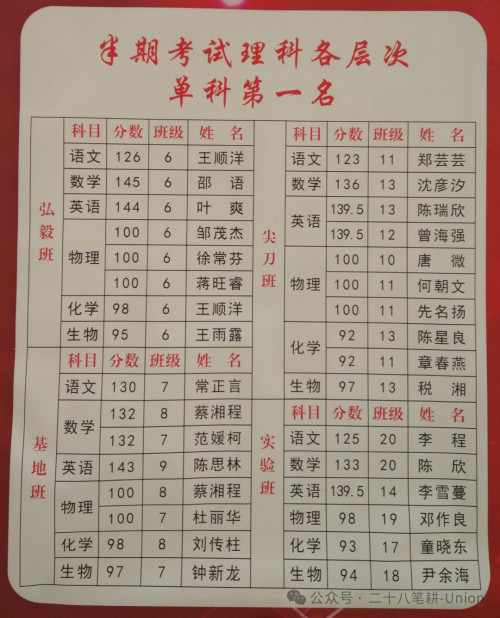 半期考试理科各层次
单科第一名
弘毅班
科目 分数 班级 姓 名
语文 126 6 王顺洋
数学 145 6 邵 语
英语 144 6 叶 爽
物理 100 6 邹茂杰
100 6 徐常芬
100 6 蒋旺睿
化学 98 6 王顺洋
生物 95 6 王雨露
基地班
科目 分数 班级 姓 名
语文 130 7 常正言
数学 132 8 蔡湘程
132 7 范媛柯
英语 143 9 陈思林
物理 100 8 蔡湘程
100 7 杜丽华
化学 98 8 刘传柱
生物 97 7 钟新龙
尖刀班
科目 分数 班级 姓 名
语文 123 11 郑芸芸
数学 136 13 沈彦汐
英语 139.5 13 陈瑞欣
139.5 12 曾海强
物理 100 10 唐 微
100 11 何朝文
100 11 先名扬
化学 92 13 陈星良
92 11 章春燕
生物 97 13 税 湘
实验班
科目 分数 班级 姓 名
语文 125 20 李 程
数学 133 20 陈 欣
英语 139.5 14 李雪蔓
物理 98 19 邓作良
化学 93 17 童晓东
生物 94 18 尹余海
公众号·二十八笔耕-Union